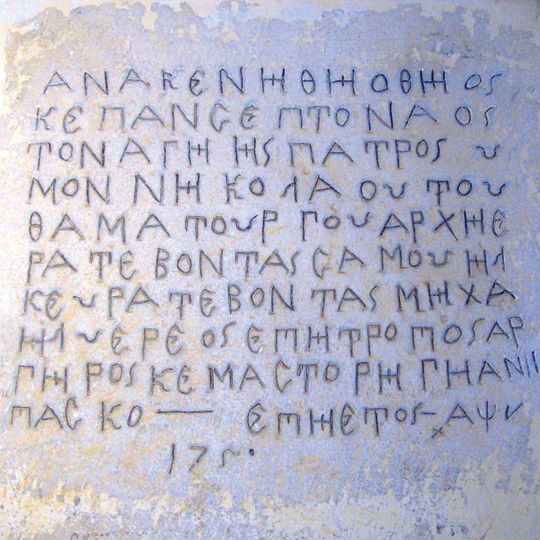 ΑΝΑΚΕΝΗΘΗΟΘΗΟς
ΚΕ ΠΑΝCΕΠΤΟΝΑΟς
ΤΟΝΑΓΗ ΗςΠΑΤΡΟς υ
ΜΟΝ ΝΗΚΟΛΑΟυ ΤΟυ
ΘΑΜΑΤΟυΡΓΟυΑΡΧΗΕ
ΡΑΤΕΒΟΝΤΑςCΑΜΟυΗΛ
ΚΕυΡΑΤΕΒΟΝΤΑς ΜΗΧΑ
ΗΛυΕΡΕΟςΕΠΗΤΡΟΠΟςΑΡ
ΓΗΡΟςΚΕΜΑCΤΟΡΗΓΗΑΝΗ
ΠΑςΚΟ — ΕΠΗΕΤΟς-ΑΨΝ
175.